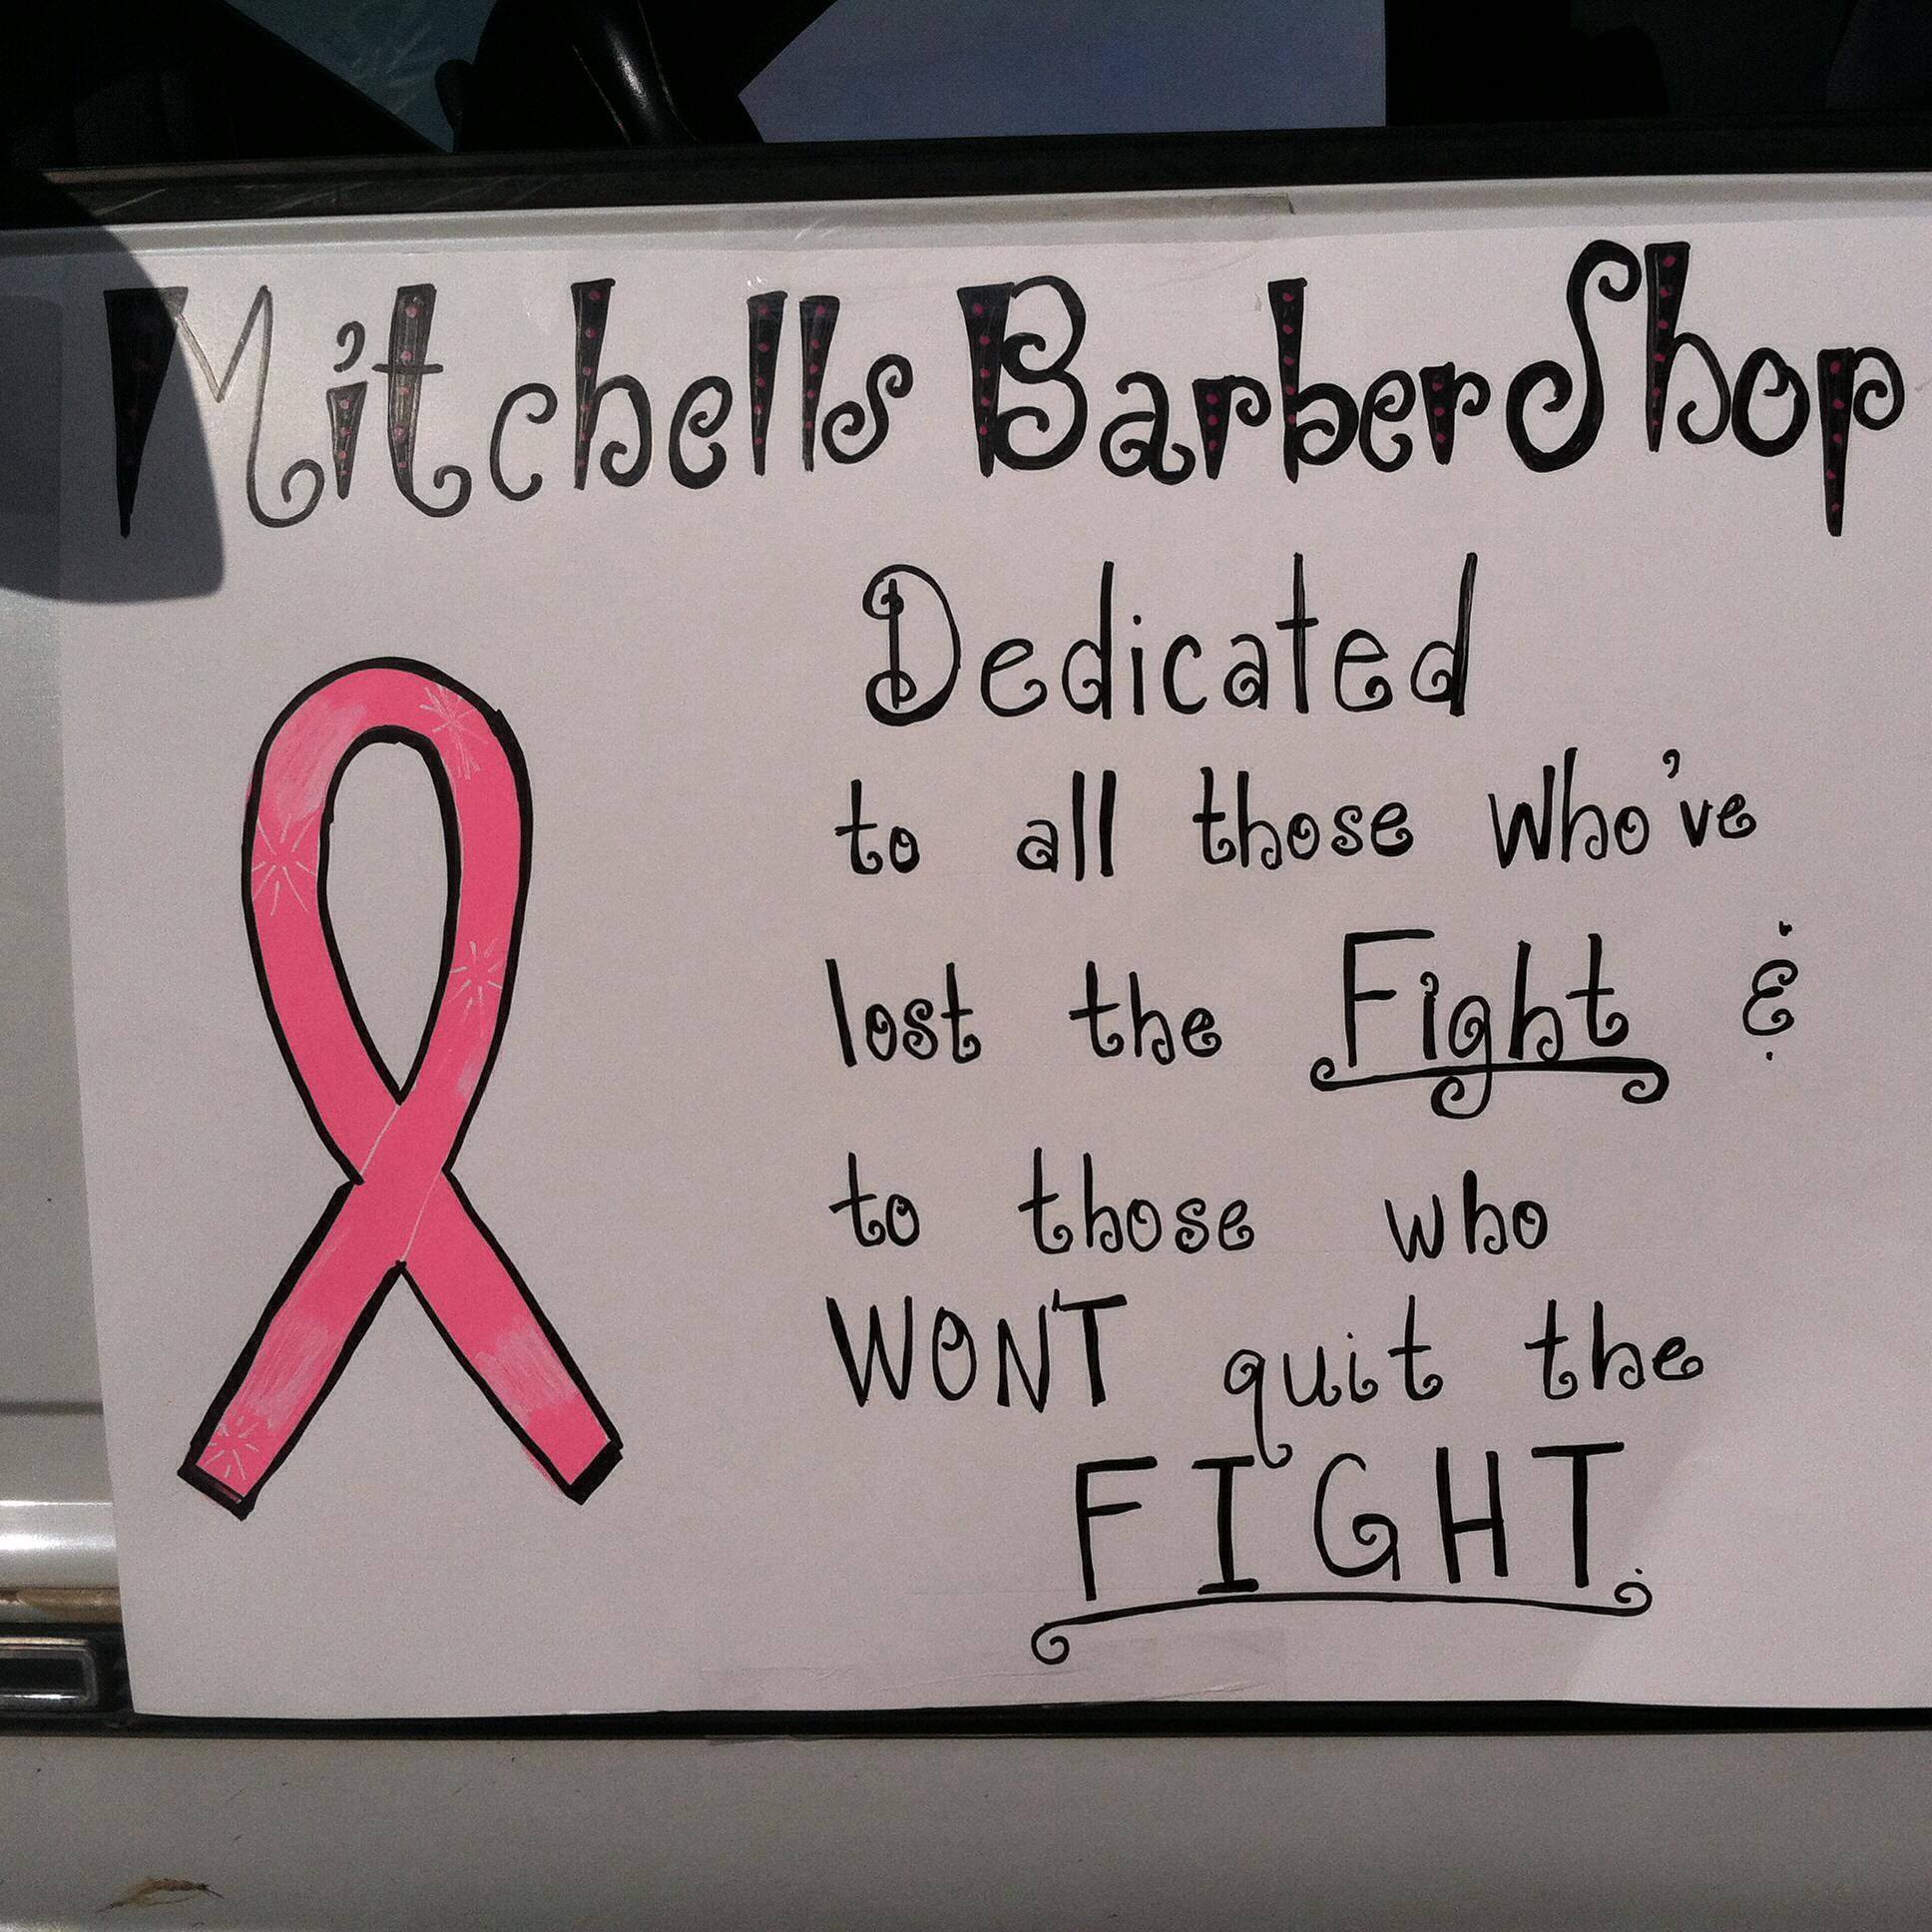 Mitchells BarberShop
Dedicated
to all those who've
lost the Fight &
to those who
WON'T quit the
FIGHT.